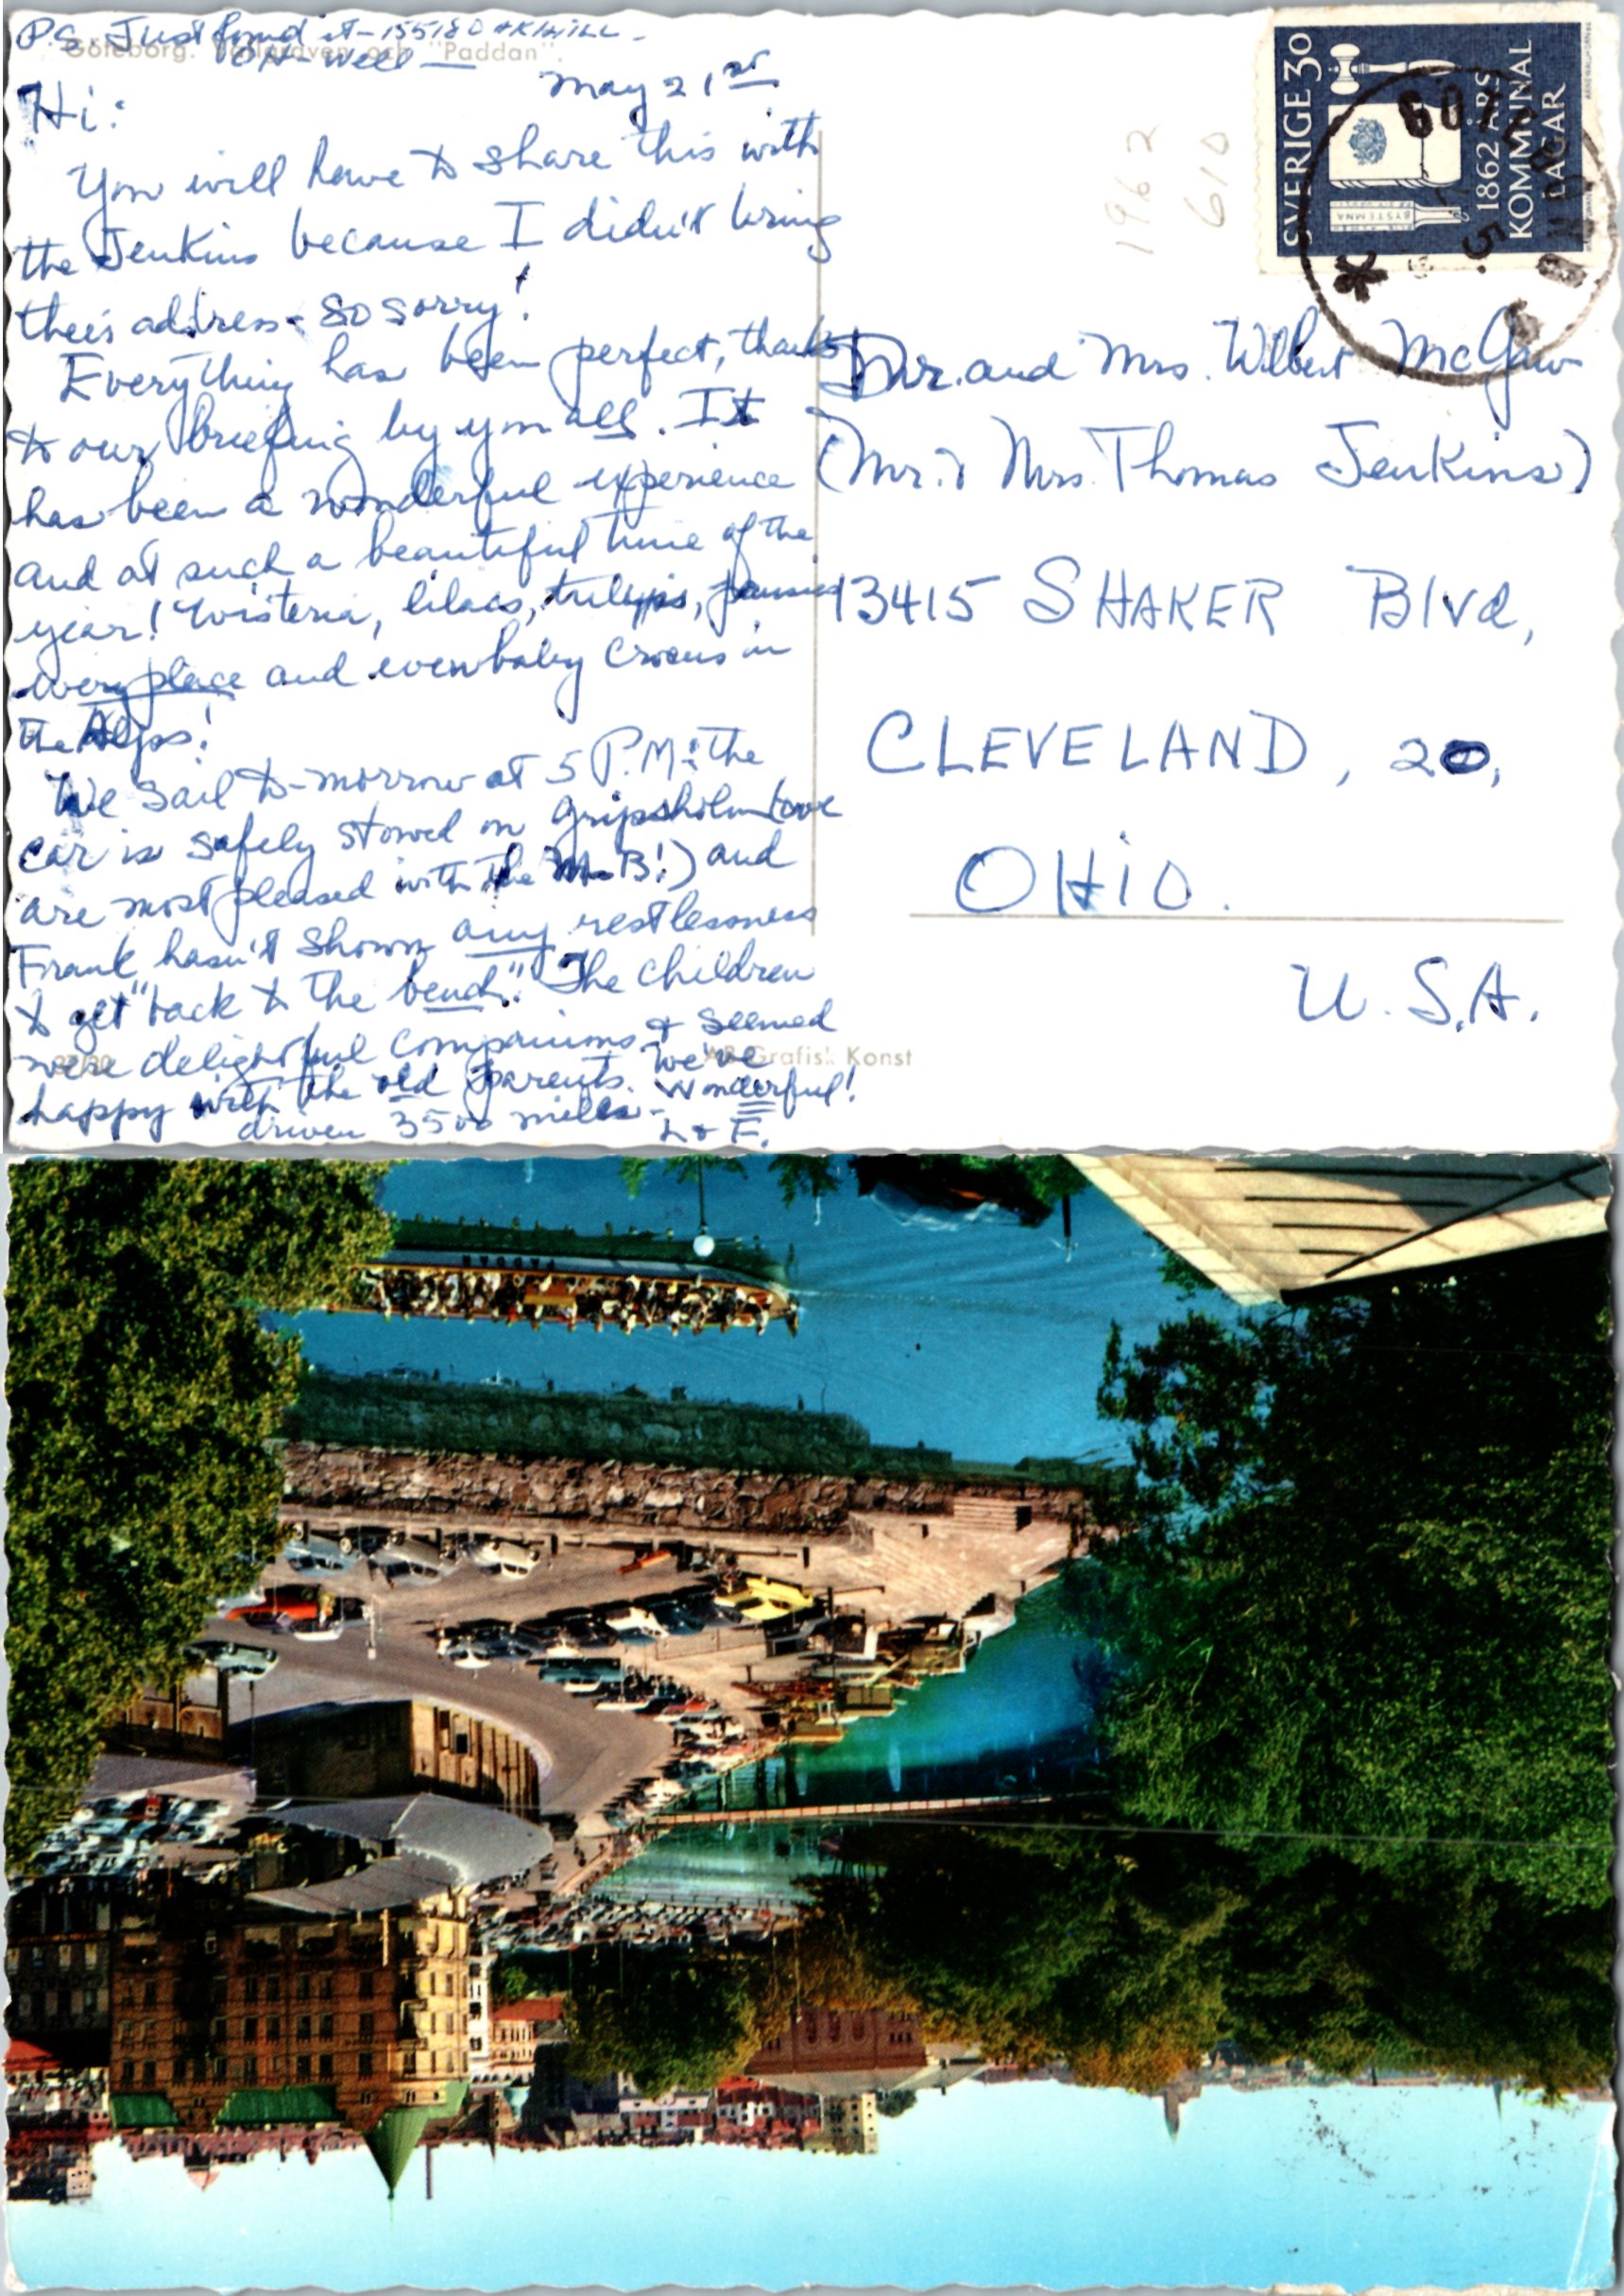 P.S. Just found it - 15518 OAKHILL -
OH - well -
Göteborg. Vallgraven och "Paddan".
May 21st
Hi:
You will have to share this with
the Jenkins because I didn't bring
their address - so sorry!
Everything has been perfect, thanks
to our briefing by you all. It
has been a wonderful experience
and at such a beautiful time of the
year! Wisteria, lilacs, tulips, pansies
every place and even baby crocus in
the Alps!
We sail to-morrow at 5 P.M: the
car is safely stowed on Gripsholm (we
are most pleased with the M-B!) and
Frank hasn't shown any restlessness
to get "back to the bench". The children
were delightful companions & seemed
happy with the old parents. We've
driven 3500 miles - Wonderful!
L & F.
AB Grafisk Konst
1962
610
SVERIGE 30
1862 ÅRS
KOMMUNAL
LAGAR
Dr. and Mrs. Wilbert McGaw
(Mr. & Mrs. Thomas Jenkins)
13415 SHAKER Blvd,
CLEVELAND, 20,
OHIO.
U.S.A.
PADDAN